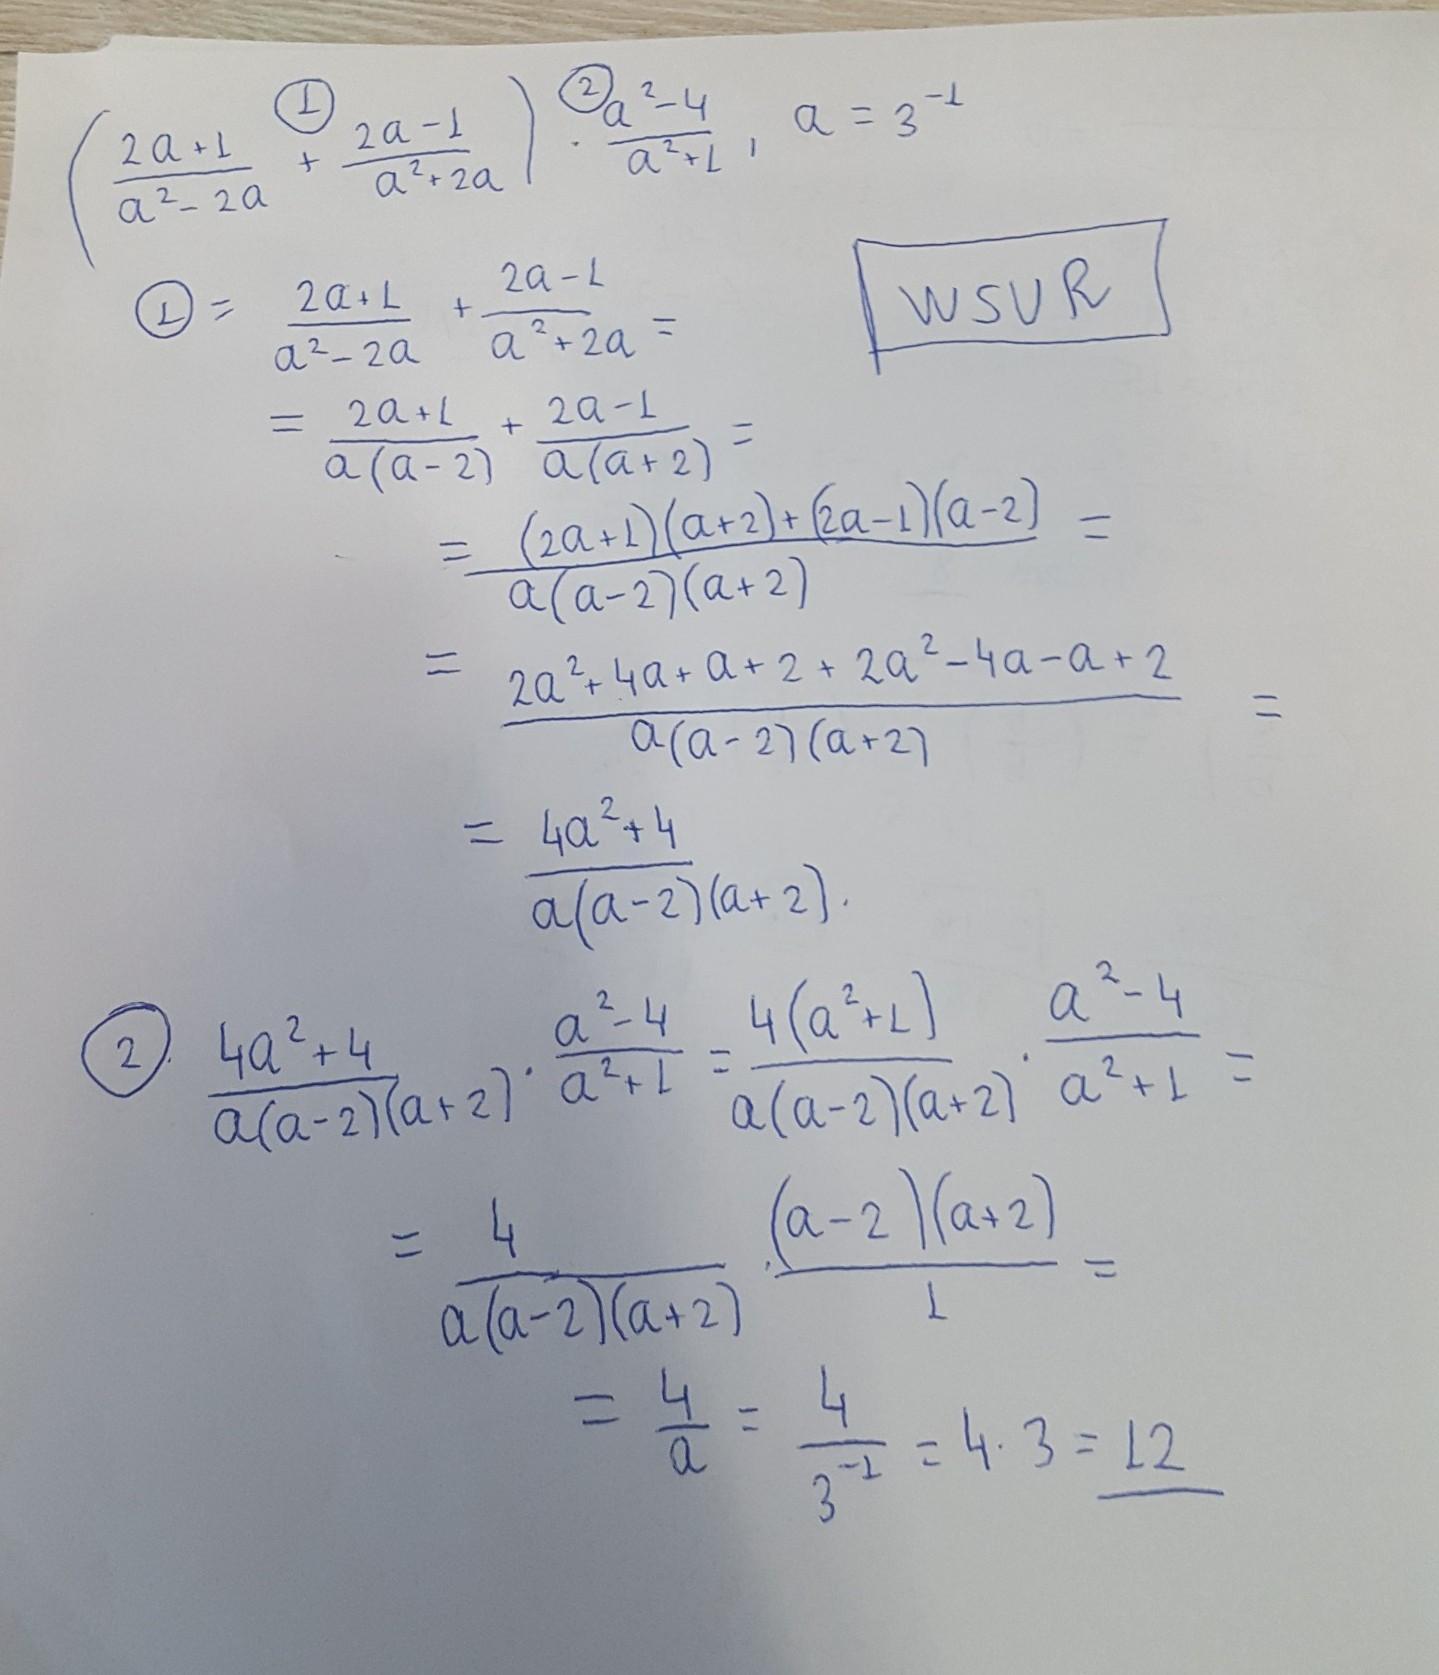 ( (2a+1)/(a²-2a) + (2a-1)/(a²+2a) ) · (a²-4)/(a²+1), a = 3⁻¹
① ②
① = (2a+1)/(a²-2a) + (2a-1)/(a²+2a) =
WSUR
= (2a+1)/(a(a-2)) + (2a-1)/(a(a+2)) =
= ((2a+1)(a+2)+(2a-1)(a-2))/(a(a-2)(a+2)) =
= (2a²+4a+a+2+2a²-4a-a+2)/(a(a-2)(a+2)) =
= (4a²+4)/(a(a-2)(a+2)).
②. (4a²+4)/(a(a-2)(a+2)) · (a²-4)/(a²+1) = (4(a²+1))/(a(a-2)(a+2)) · (a²-4)/(a²+1) =
= 4/(a(a-2)(a+2)) · ((a-2)(a+2))/1 =
= 4/a = 4/3⁻¹ = 4·3 = 12